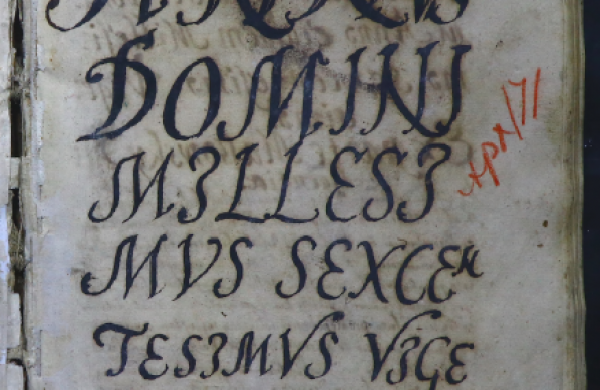 DOMINI
MILLESI
MVS SEXCEN
TESIMVS VIGE
APR/71